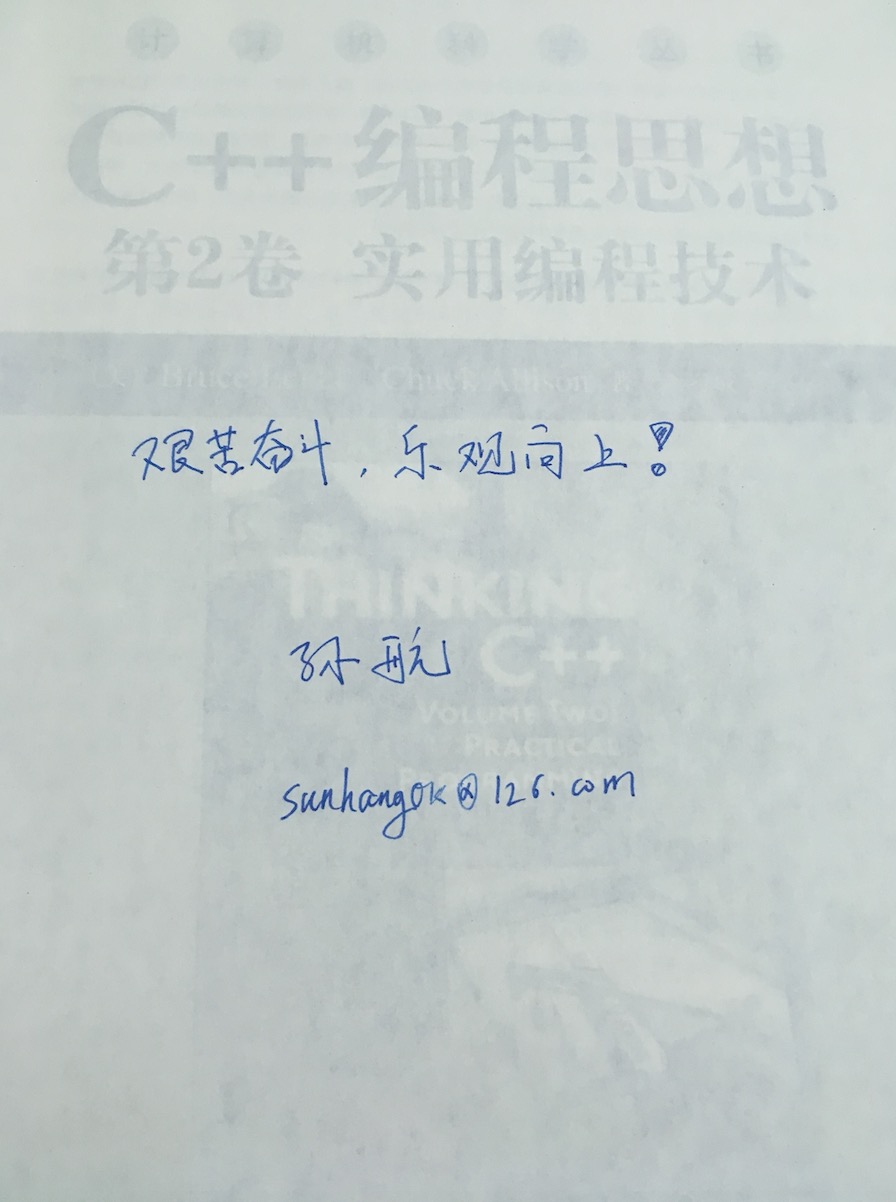 计算机科学丛书
C++编程思想
第2卷 实用编程技术
Bruce Eckel Chuck Allison 著
艰苦奋斗，乐观向上！
THINKING
C++
VOLUME TWO:
PRACTICAL
PROGRAMMING
孙航
sunhangok@126.com